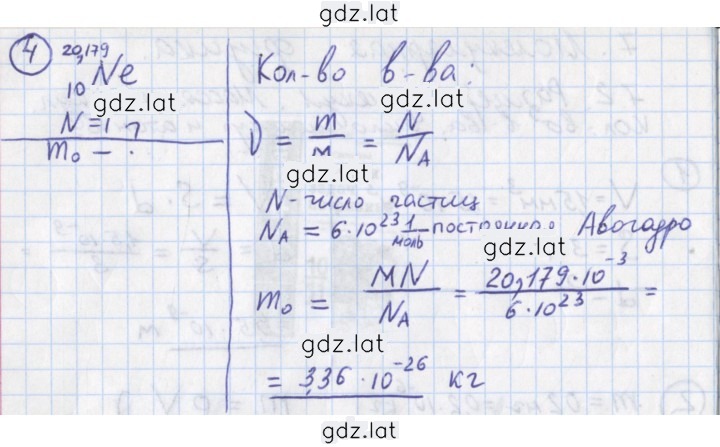 gdz.lat
4
20,179
10 Ne
gdz.lat
N = 1
m₀ — ?
Кол-во в-ва:
ν = m/M = N/N_A
gdz.lat
N - число частиц
N_A = 6·10²³ 1/моль - постоянная Авогадро
gdz.lat
m₀ = MN/N_A = 20,179·10⁻³/6·10²³ =
gdz.lat
= 3,36 · 10⁻²⁶ кг
gdz.lat